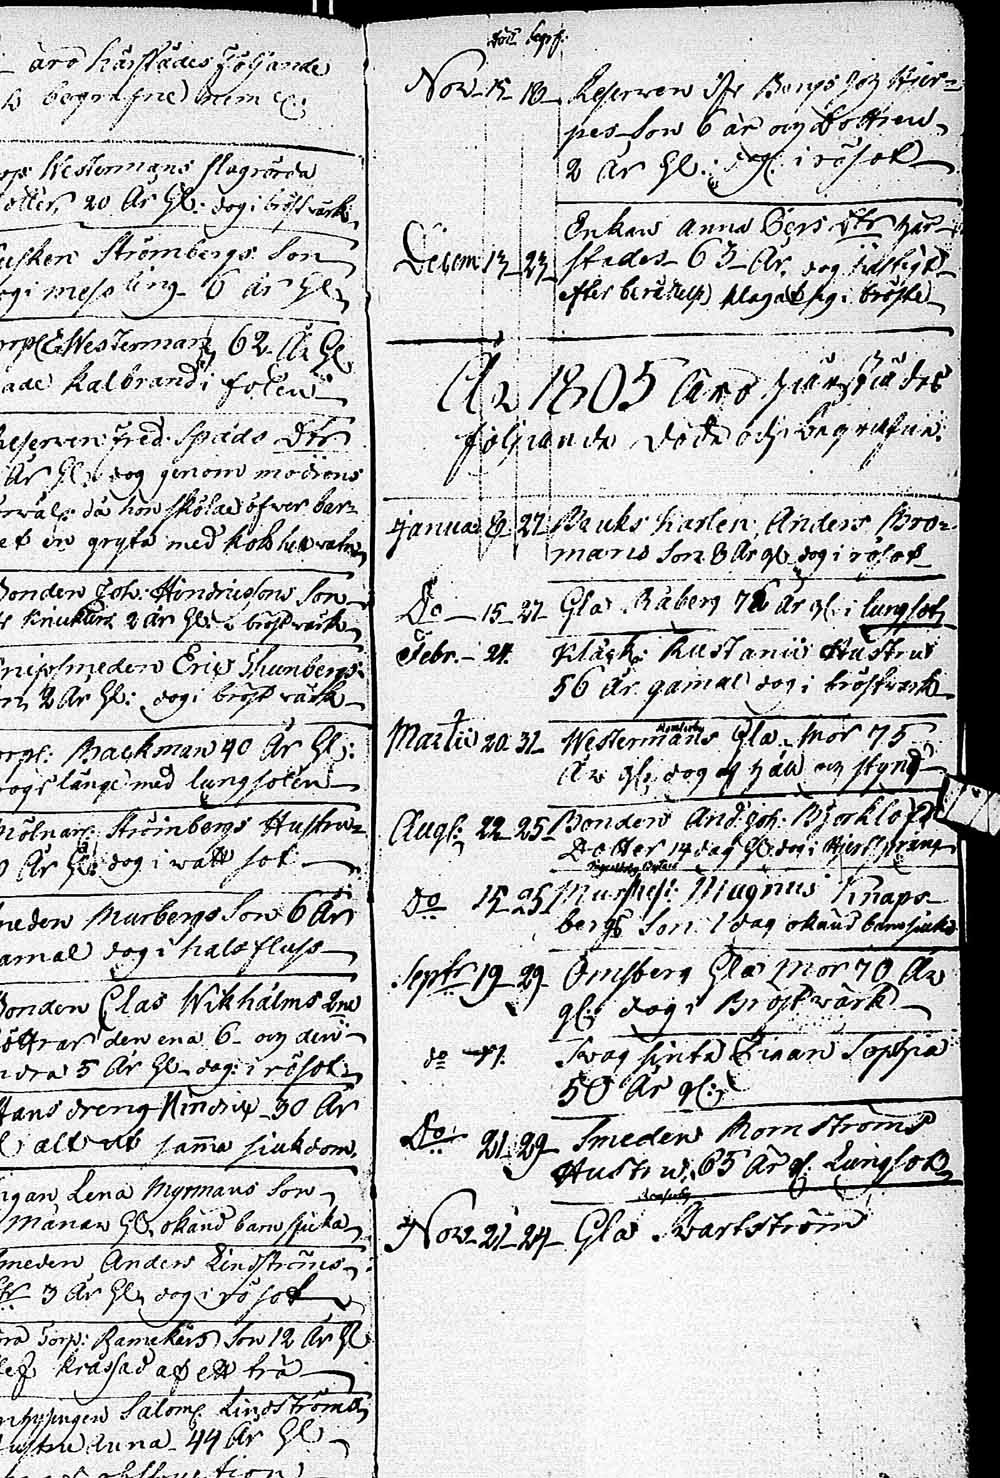 äro härstädes följande
begrafne nem:
Westermans flagröda
dotter, 20 År Gl: dog i bröstwärk
Strömbergs Son
dog i messling 6 år Gl
Westerman 62 År Gl
hade kalbrand i foten
Reserven Fred: Späds Dtr
År Gl dog genom modrens
då hon skölade öfwer bar-
et en gryta med kokhet watn
Bonden Joh: Hindrigsons Son
2 År Gl: i bröstwärk
Knipsmeden Eric Thunbergs
2 År Gl: dog i bröst wärk
Backman 40 År Gl:
länge med lungsoten
Mölnar: Strömbergs Hustru
År Gl: dog i watt sot
Smeden Murbergs Son 6 År
gamal dog i halsfluss
Bonden Clas Wikholms 2ne
döttrar den ena 6 och den
andra 5 År Gl dog i rösot
Hans dreng Hindric 30 År
alt af samma siukdom
Pigan Lena Myrmans Son
månar Gl, okänd barnsiuka
Smeden Anders Lindströms
Dtr 3 År Gl dog i rösot
Torp: Ramskärs Son 12 År Gl
blef krassad af ett trä
Inhysingen Salom: Lindströms
Hustru Anna 44 År Gl
obstruction
Död begr:
Nov 15 18 Reserven Bengs Joh Hjer-
pes Son 6 år och Dottren
2 År Gl: dog: i rösot
Decem 13 23 Enkan Anna Ders Dtr här-
stades 63 År, dog
efter berättelse klagat sig i bröste
År 1805 äro härstädes
följande döde och begrafne
Januar 8 27 Bruks Karlen Anders Bro-
mans Son 8 År gl dog i rösot
Do 15 27 Gla Råberg 76 År gl: i lungsot
Febr. 24 Kläck: Rustanii Hustru
56 År gamal dog i bröstwärk
Martii 20 31 Westermans Gla Mor 75
År gl: dog af håll och styng
Augl: 22 25 Bonden And: Joh: Björklöfs
Dotter 14 dag gl: dog i Hjertsprång
Do 15 25 Magnus Knaps-
bergs Son 1 dag okänd barnsiuka
Septbr 19 29 Omsberg Gla Mor 70 År
gl: dog i Bröst wärk
do Swagsinta Pigan Sophia
50 År gl:
Do 21 29 Smeden Romströms
Hustru 65 År gl: Lungsot
Nov 21 24 Gla Swartström